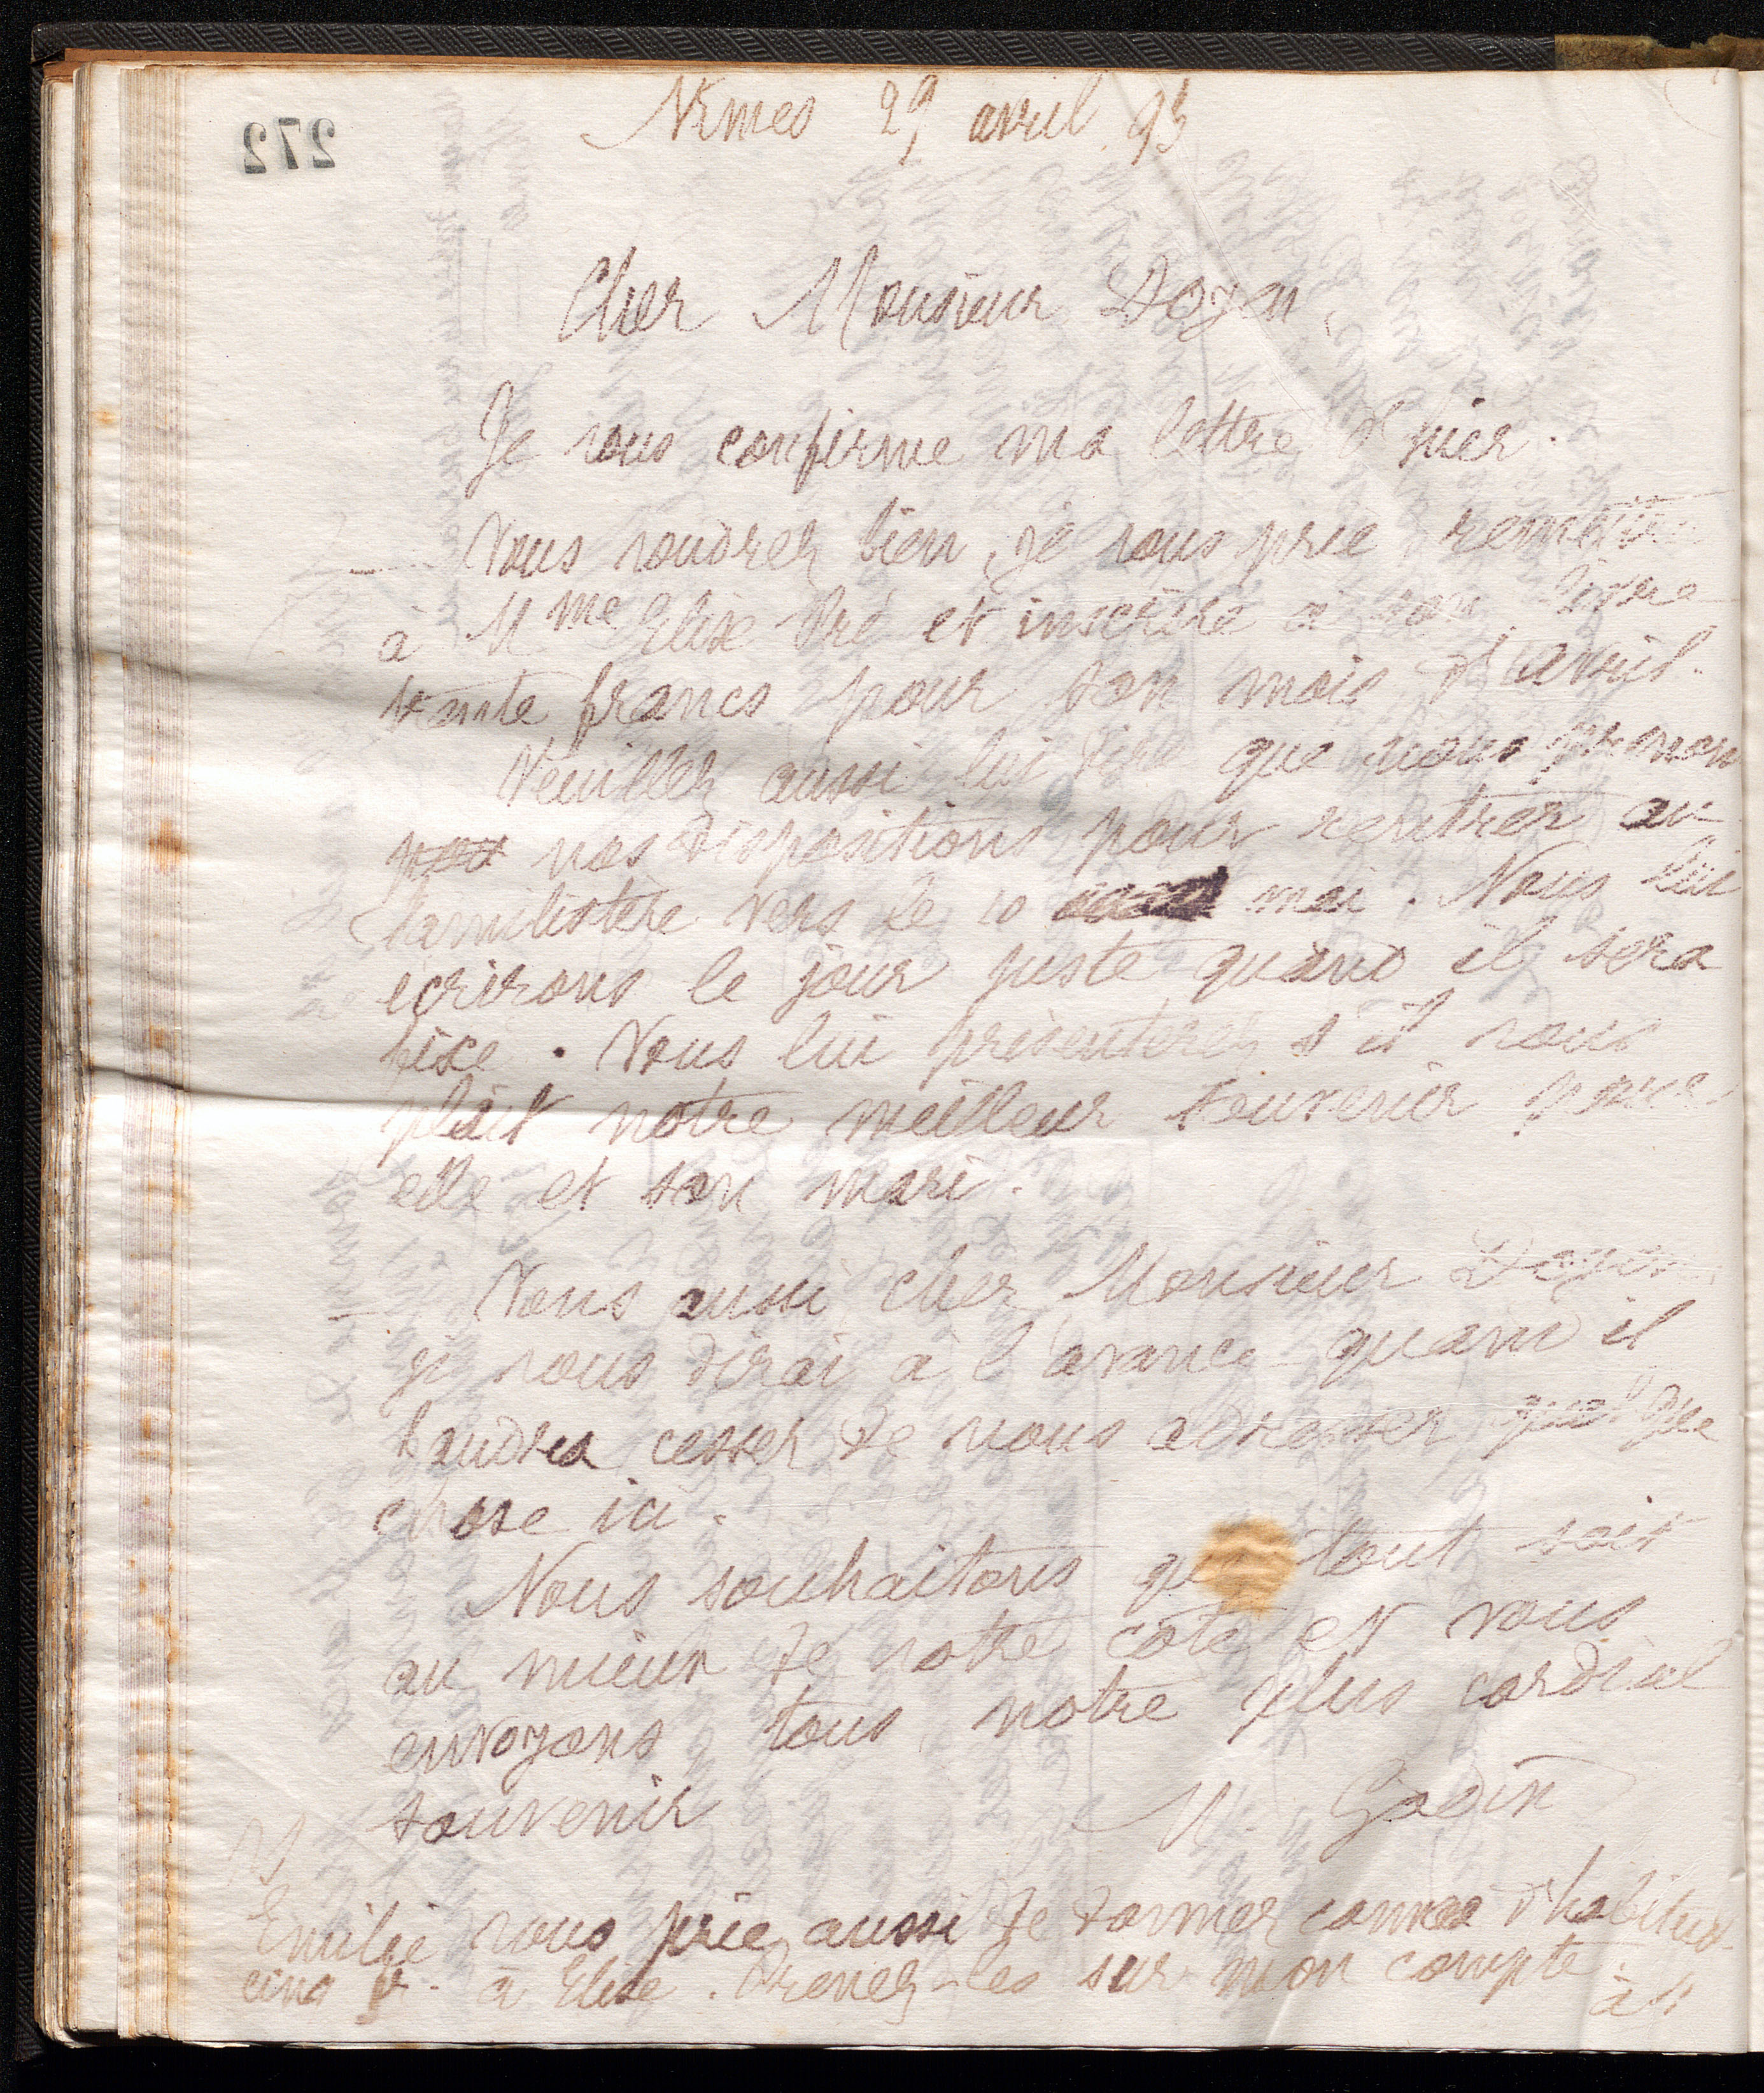 272
Nimes 29 avril 93
Cher Monsieur Doyen,
Je vous confirme ma lettre d'hier.
Vous voudrez bien, je vous prie remettre
à Mme Elise Pré et inscrire à son livre
trente francs pour son mois d'avril.
Veuillez aussi lui dire que nous prenons
pour nos dispositions pour rentrer au
familistère vers le 10 mai. Nous lui
ecrirons le jour juste quand il sera
fixe. Vous lui présenterez s'il vous
plait notre meilleur souvenir pour
elle et son mari.
Vous aussi, cher Monsieur Doyen
je vous dirai à l'avance quand il
faudra cesser de nous adresser quelque
chose ici.
Nous souhaitons que tout soit
au mieux de votre côté et vous
envoyons tous notre plus cordial
souvenir
M. Godin
PS
Emilie vous prie aussi de donner comme d'habitude
cinq f. à Elise. Prenez-les sur mon compte